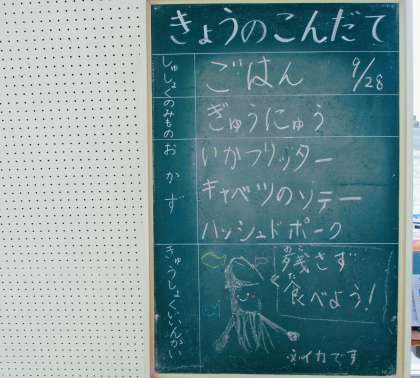 きょうのこんだて
しゅしょく
ごはん 9/28
のみもの
ぎゅうにゅう
おかず
いかフリッター
キャベツのソテー
ハッシュドポーク
きゅうしょくいいんかい
残さず
食べよう!
※イカです